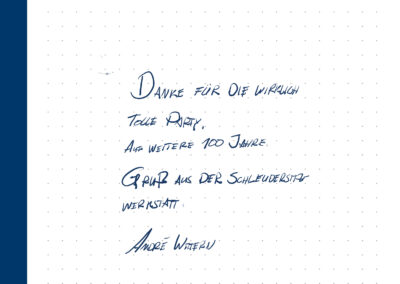 DANKE FÜR DIE WIRKLICH
TOLLE PARTY,
AUF WEITERE 100 JAHRE.
GRUß AUS DER SCHLEUDERSITZ
WERKSTATT.
ANDRÉ